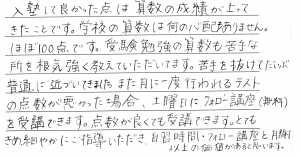 入塾して良かった点は算数の成績が上って
きたことです。学校の算数は何の心配ありません。
ほぼ100点です。受験勉強の算数も苦手な
所を根気強く教えていただいてます。苦手を抜けてだいぶ
普通に近づいてきました また月に一度行われるテスト
の点数が悪かった場合、土曜日にフォロー講座(無料)
を受講できます。点数が良くても受講できます。とても
きめ細やかにご指導いただき 自習時間・フォロー講座と月謝
以上の価値があると思います。